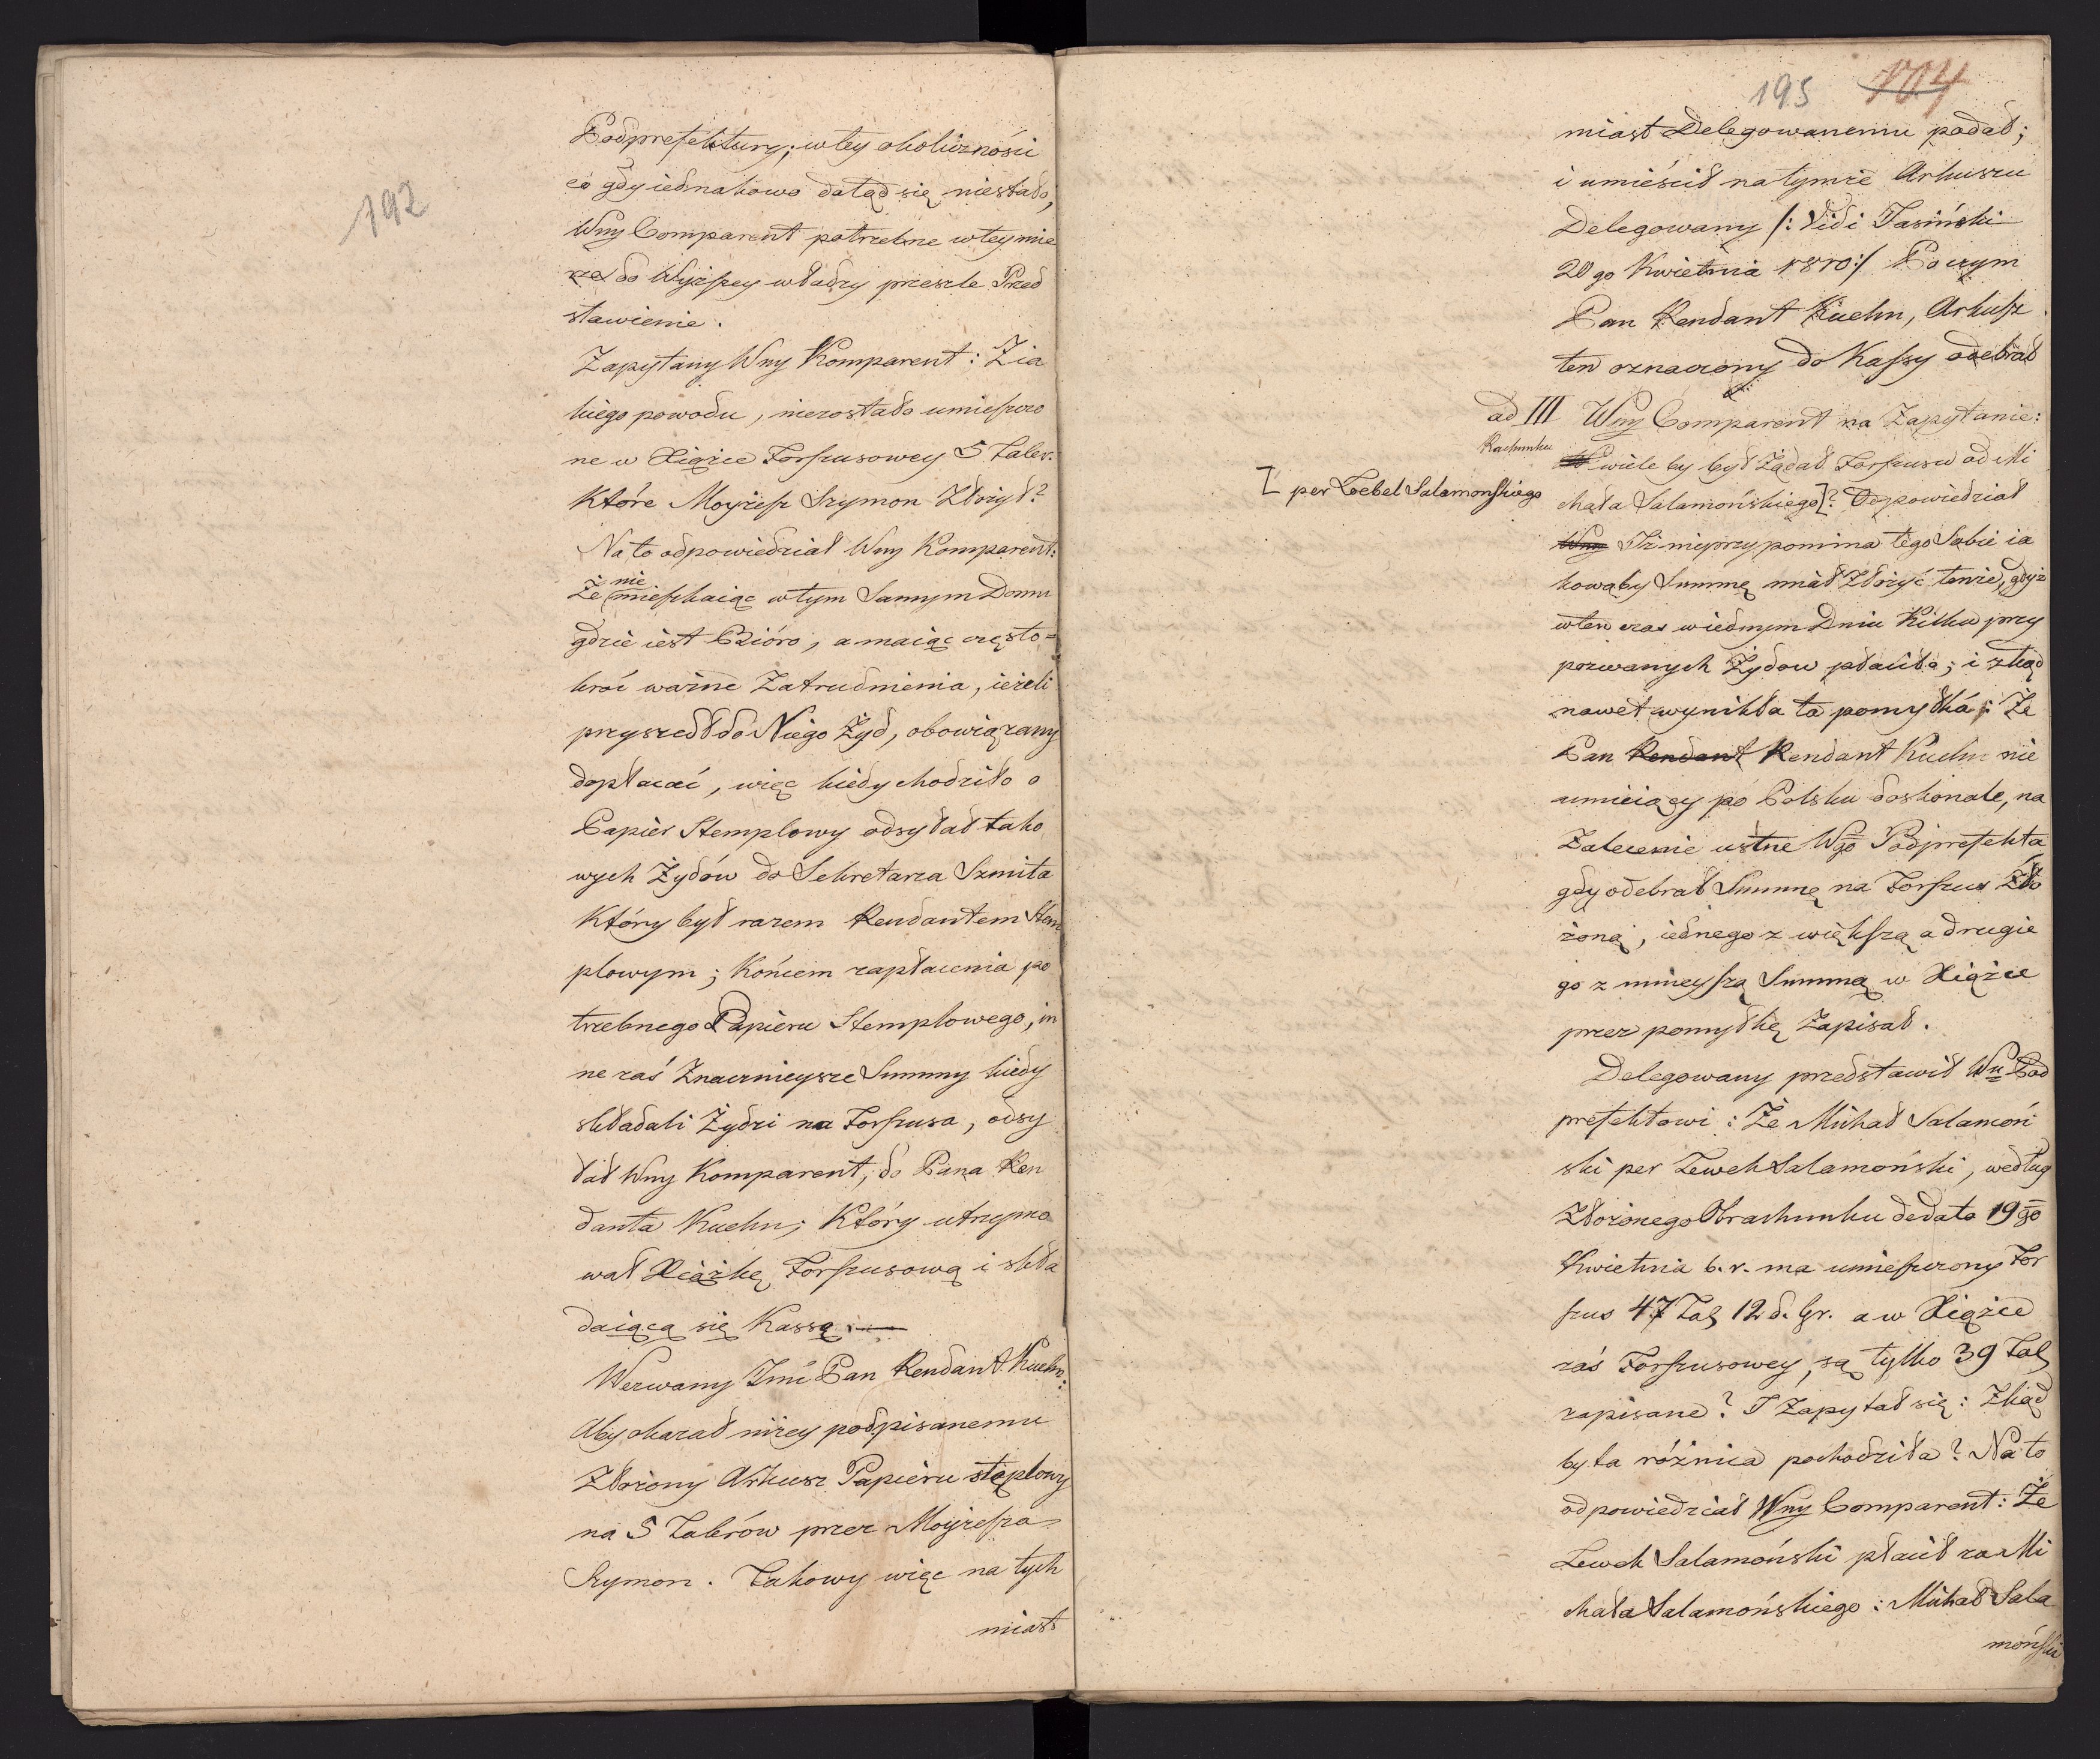 192
Podprefektury; w tey okoliczności
co gdy iednakowo dotąd się niestało,
Wny Comparent potrzebne w tey mie
rze do Wyższey władzy prześle Przed
stawienie.
Zapytany Wny Komparent: Z ia
kiego powodu, niezostało umieszczo
ne w Xiążce Forszusowey 5 Taler.
Które Moyżesz Szymon Złożył?
Na to odpowiedział Wny Komparent:
Że nie mieszkaiąc w tym Samym Domu
gdzie iest Bióro, a maiąc często=
kroć ważne Zatrudnienia, ieżeli
przyszedł do Niego Żyd, obowiązany
dopłacać, więc kiedy chodziło o
Papier Stemplowy odsyłał tako
wych Żydów do Sekretarza Szmita
Który był razem Rendantem Stem
plowym; Końcem zapłacenia po
trzebnego Papieru Stemplowego, in
ne zaś Znacznieysze Summy kiedy
składali Żydzi na Forszusa, odsy
łał Wny Komparent, do Pana Ren
danta Kuehn; Który utrzymo
wał Xiążkę Forszusową i skła
daiącą się Kassą.
Wezwany Imć Pan Rendant Kuehn:
Aby okazał niżey podpisanemu
Złożony Arkusz Papieru stęplowy
na 5 Talerów przez Moyżesza
Szymon. Takowy więc na tych
miast
195 104
miast Delegowanemu podał;
i umieścił na tymże Arkuszu
Delegowany /: Vidi Jasiński
20go Kwietnia 1810 :/ Po czym
Pan Rendant Kuehn, Arkusz
ten oznaczony do Kassy odebrał
ad III Wny Comparent na Zapytanie:
Rachunku
wiele by był Żądał Forszusu od Mi
[ per Loebel Salamonskiego
chała Salamońskiego]? Odpowiedział
Wny Iż nieprzypomina tego Sobie ia
kowąby Summę miał Złożyć tenże, gdyż
w ten czas w iednym Dniu Kilku przy
pozwanych Żydow płaciło; i ztąd
nawet wynikła ta pomyłka: Że
Pan Rendant Rendant Kuehn nie
umieiący po Polsku doskonale, na
Zalecenie ustne Wgo Podprefekta
gdy odebrał Summę na Forszus Zło
żoną, iednego z większą a drugie
go z mnieyszą Summą w Xiążce
przez pomyłkę Zapisał.
Delegowany przedstawił Wu Pod
prefektowi: Że Michał Salamoń
ski per Lewek Salamoński, według
Złożonego Obrachunku de dato 19go
Kwietnia b. r. ma umieszczony For
szus 47 Tal 12 d. Gr. a w Xiążce
zaś Forszusowey, są tylko 39 Tal
zapisane? I Zapytał się: Zkąd
by ta różnica pochodziła? Na to
odpowiedział Wny Comparent: Że
Lewek Salamoński płacił za Mi
chała Salamońskiego: Michał Sala
moński